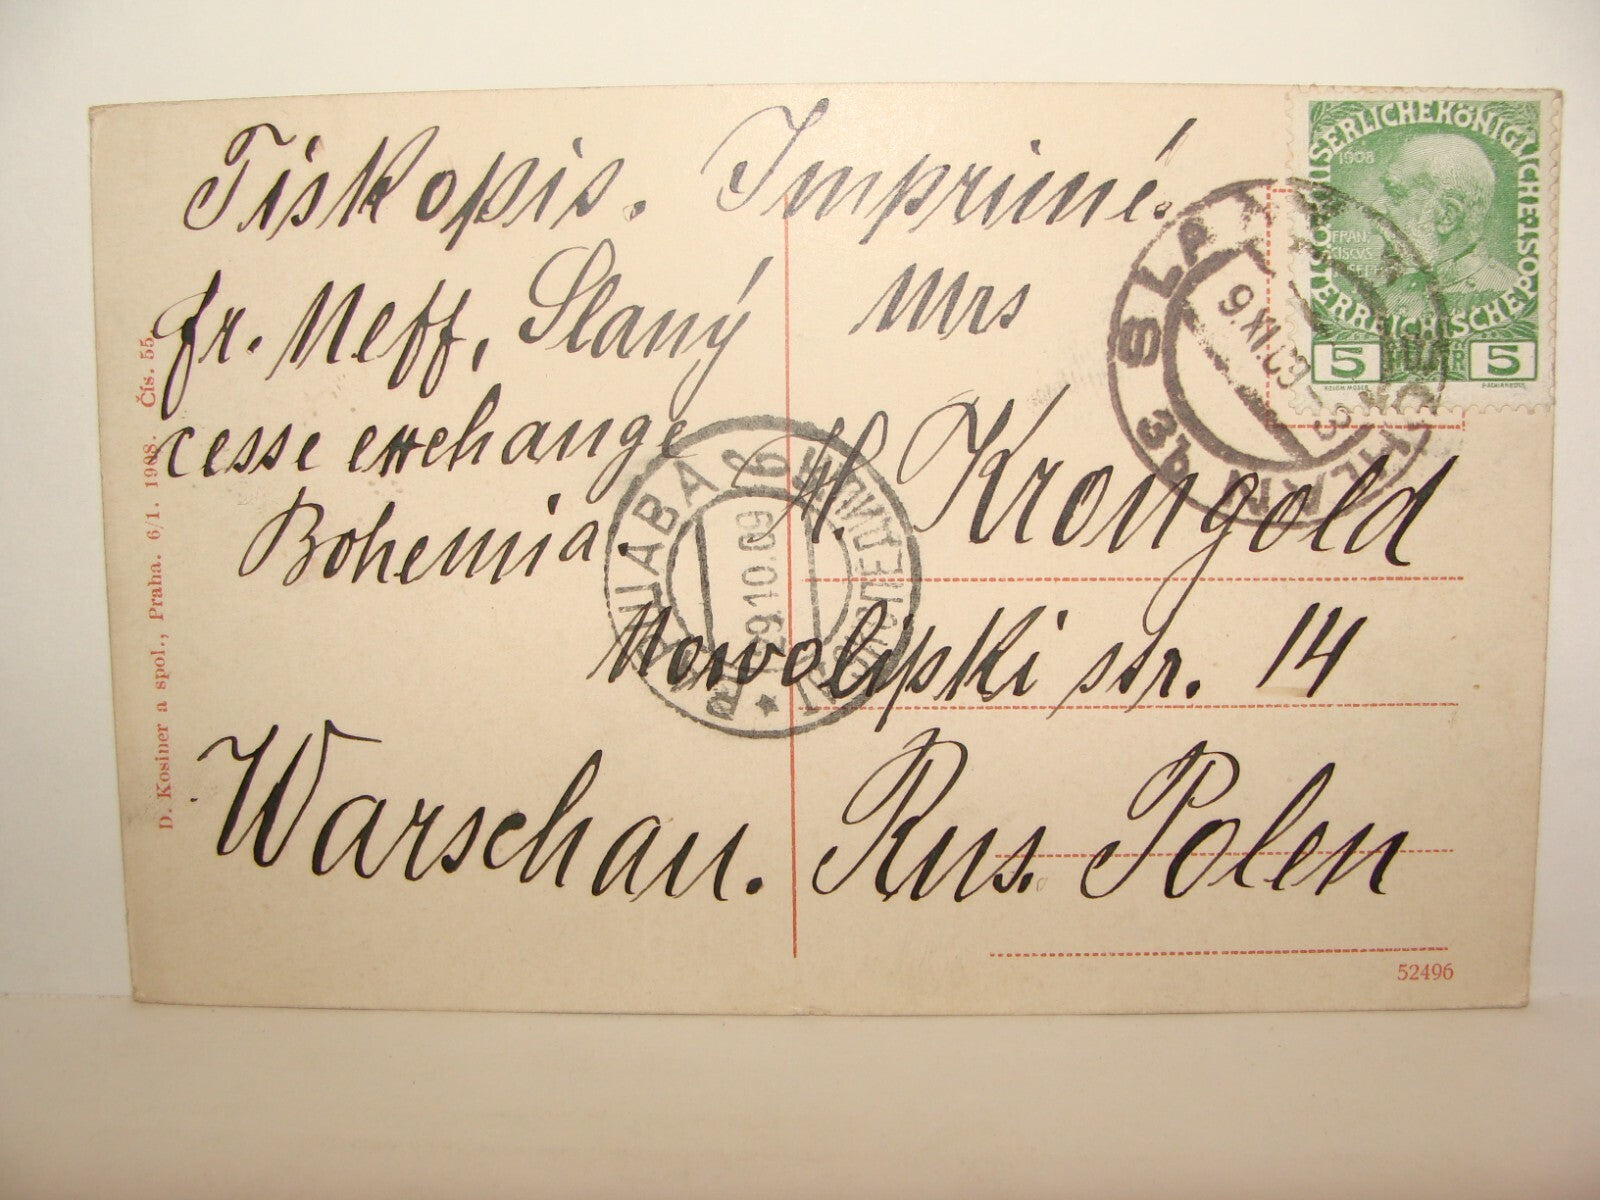 Tiskopis. Imprimé.
fr. Neff, Slaný
cesse exchange
Bohemia.
Mrs
H. Krongold
Nowolipki str. 14
Warschau. Rus. Polen
D. Kosiner a spol., Praha. 6/1. 1908. Čís. 55.
52496
KAISERLICHE KÖNIGLICHE
ÖSTERREICHISCHE POST
1908
FRAN
CISCVS
5 5
SLANÝ
9.XI.09
29.10.09